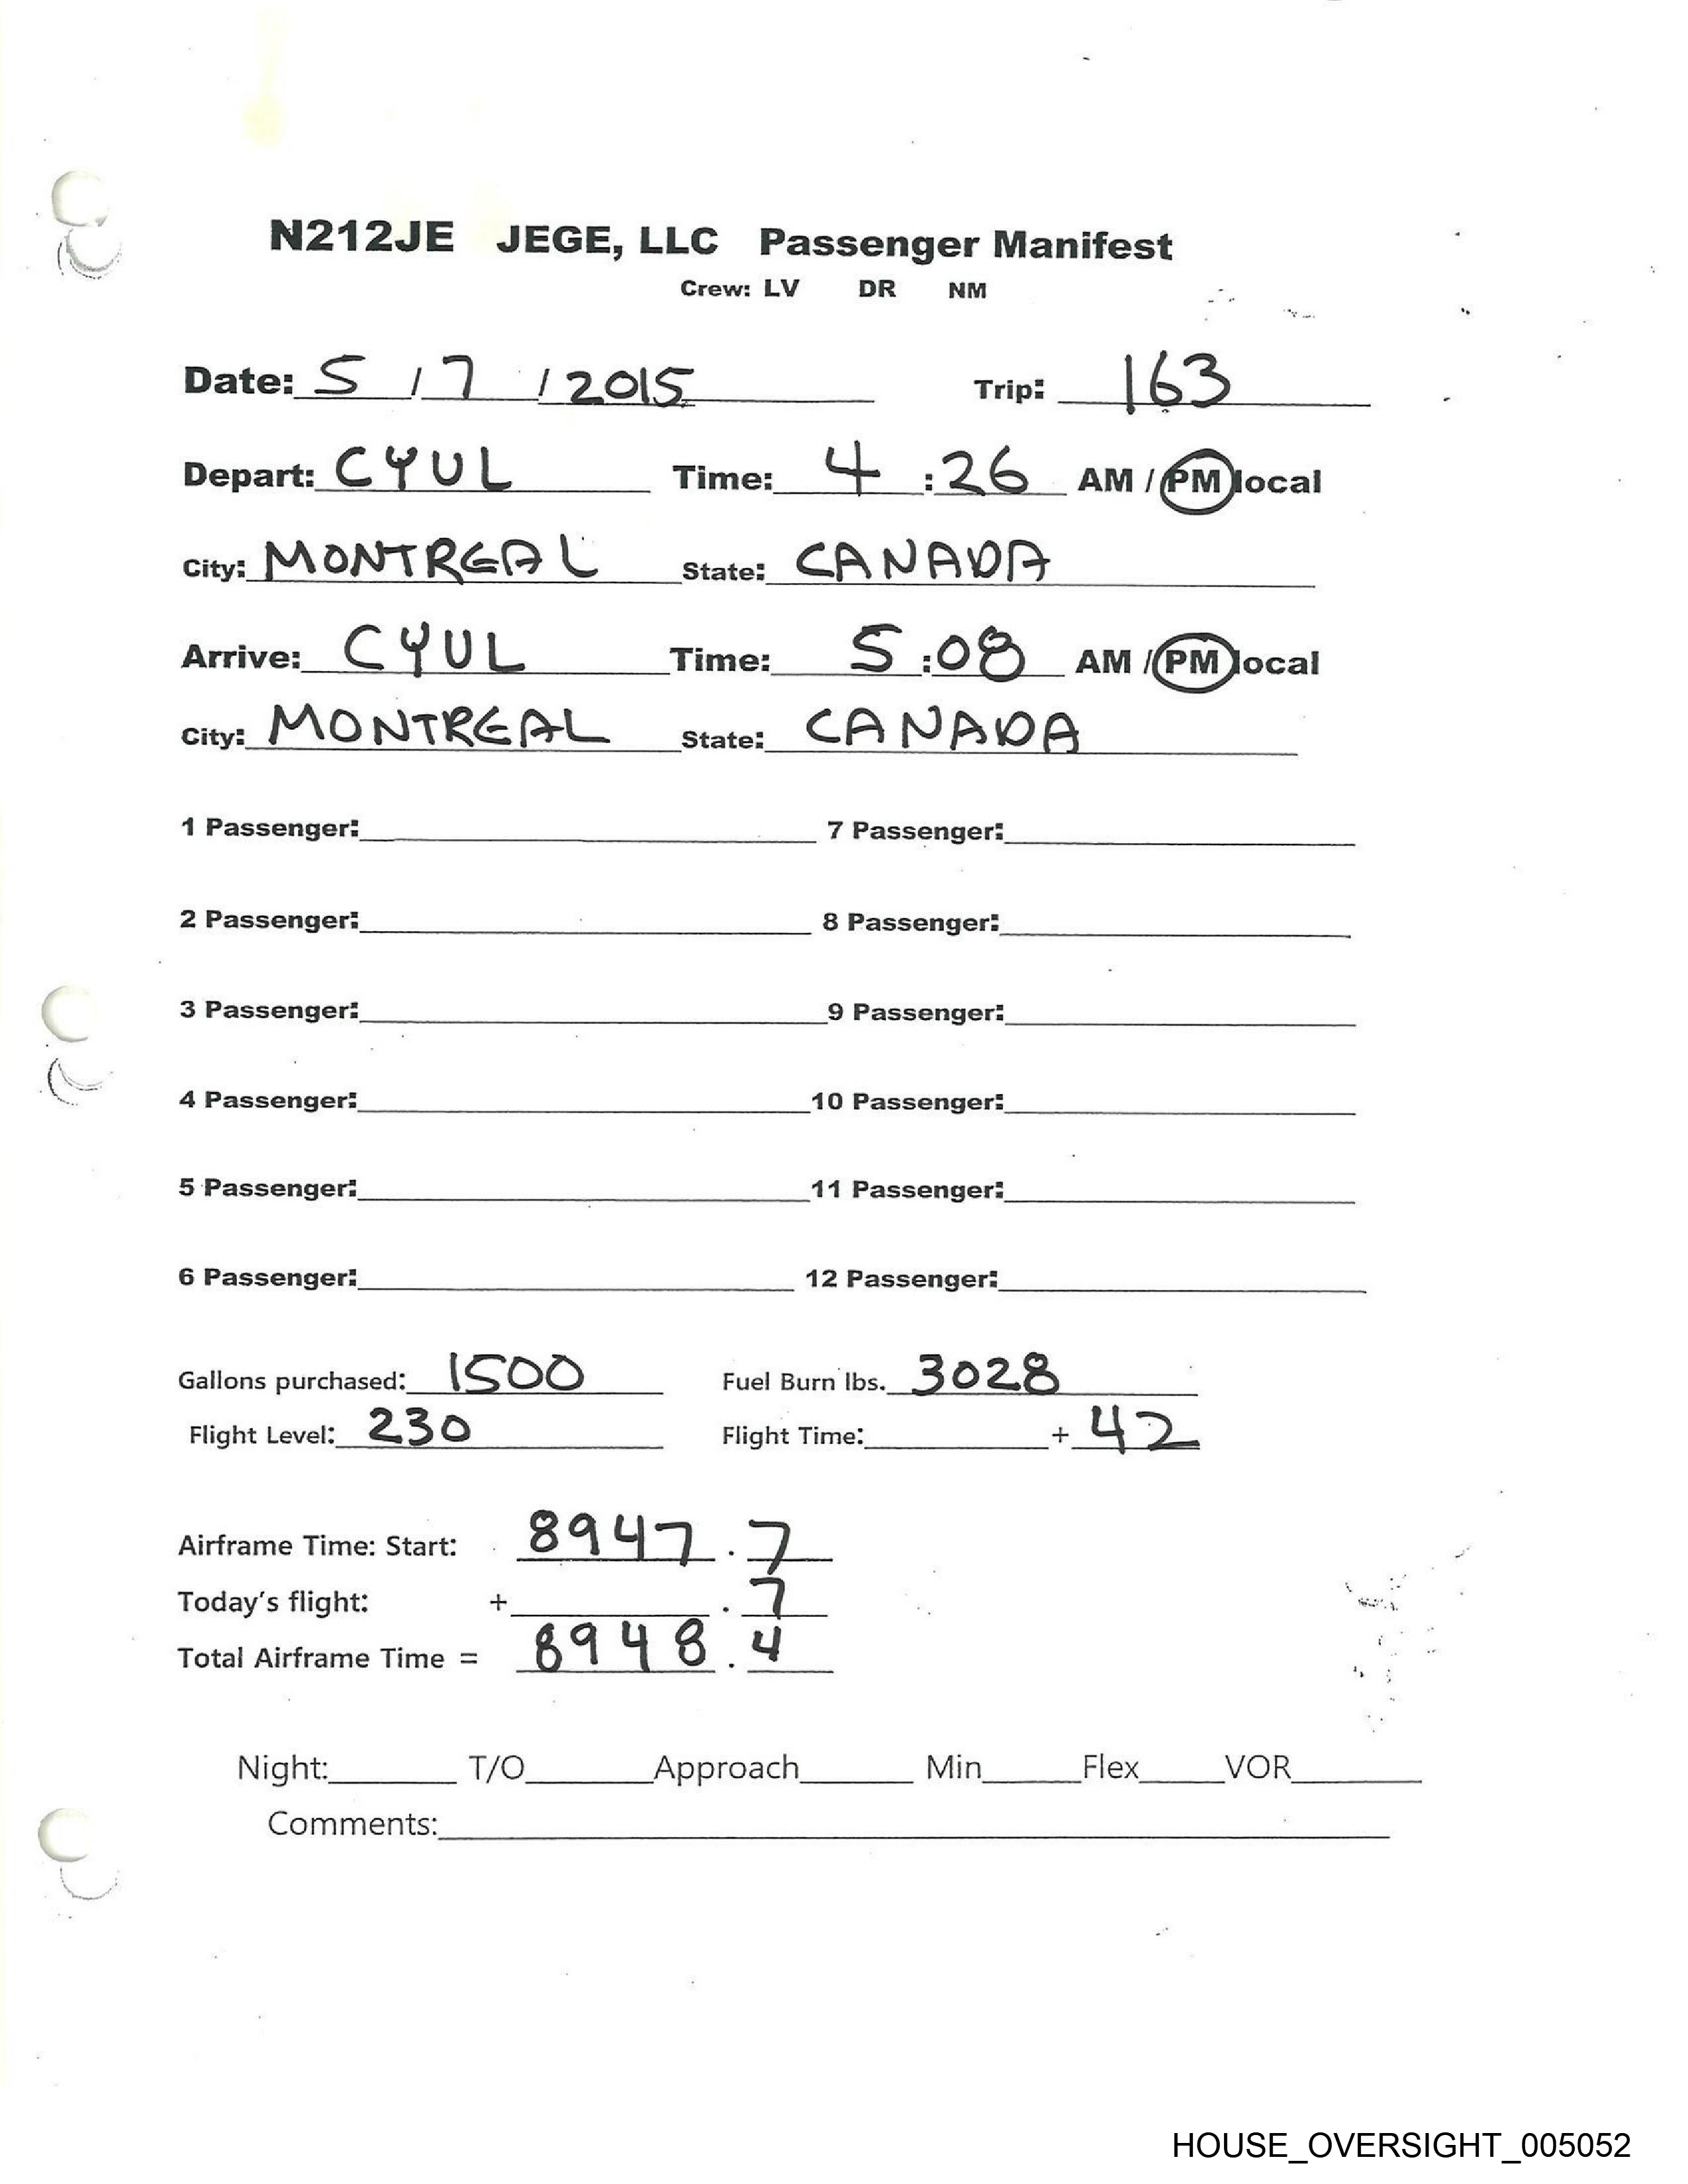 N212JE JEGE, LLC Passenger Manifest
Crew: LV DR NM
Date: 5 / 7 / 2015 Trip: 163
Depart: CYUL Time: 4 : 26 AM / PM local
City: MONTREAL State: CANADA
Arrive: CYUL Time: 5 : 08 AM / PM local
City: MONTREAL State: CANADA
1 Passenger: 7 Passenger:
2 Passenger: 8 Passenger:
3 Passenger: 9 Passenger:
4 Passenger: 10 Passenger:
5 Passenger: 11 Passenger:
6 Passenger: 12 Passenger:
Gallons purchased: 1500 Fuel Burn lbs. 3028
Flight Level: 230 Flight Time: + 42
Airframe Time: Start: 8947 . 7
Today's flight: + . 7
Total Airframe Time = 8948 . 4
Night: T/O Approach Min Flex VOR
Comments:
HOUSE_OVERSIGHT_005052